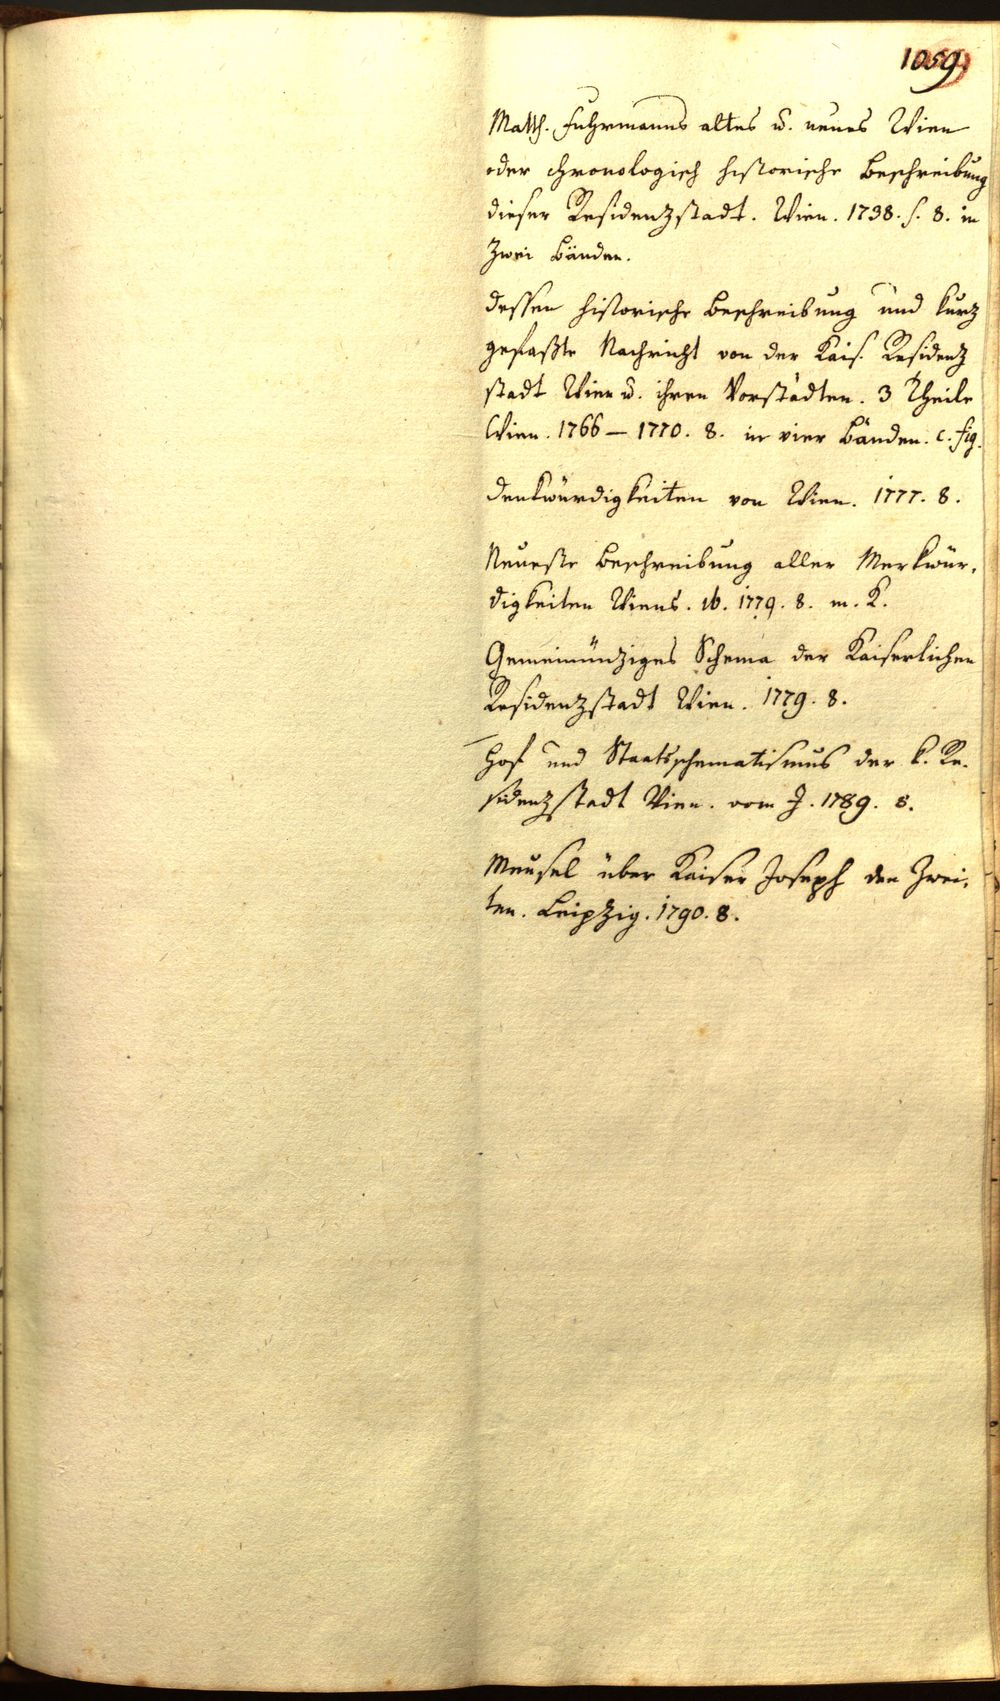 1059.
Matth. Fuhrmanns altes u. neues Wien
oder chronologisch historische Beschreibung
dieser Residenzstadt. Wien. 1738. s. 8. in
zwei Bänden.
dessen historische Beschreibung und kurz
gefaßte Nachricht von der Kais. Residenz
stadt Wien u. ihren Vorstädten. 3 Theile
Wien. 1766 — 1770. 8. in vier Bänden. c. fig.
Denkwürdigkeiten von Wien. 1777. 8.
Neueste Beschreibung aller Merkwür,
digkeiten Wiens. ib. 1779. 8. m. K.
Gemeinnüziges Schema der Kaiserlichen
Residenzstadt Wien. 1779. 8.
Hof und Staatsschematismus der k. Re,
sidenzstadt Wien. vom J. 1789. 8.
Meusel über Kaiser Joseph den Zwei,
ten. Leipzig. 1790. 8.